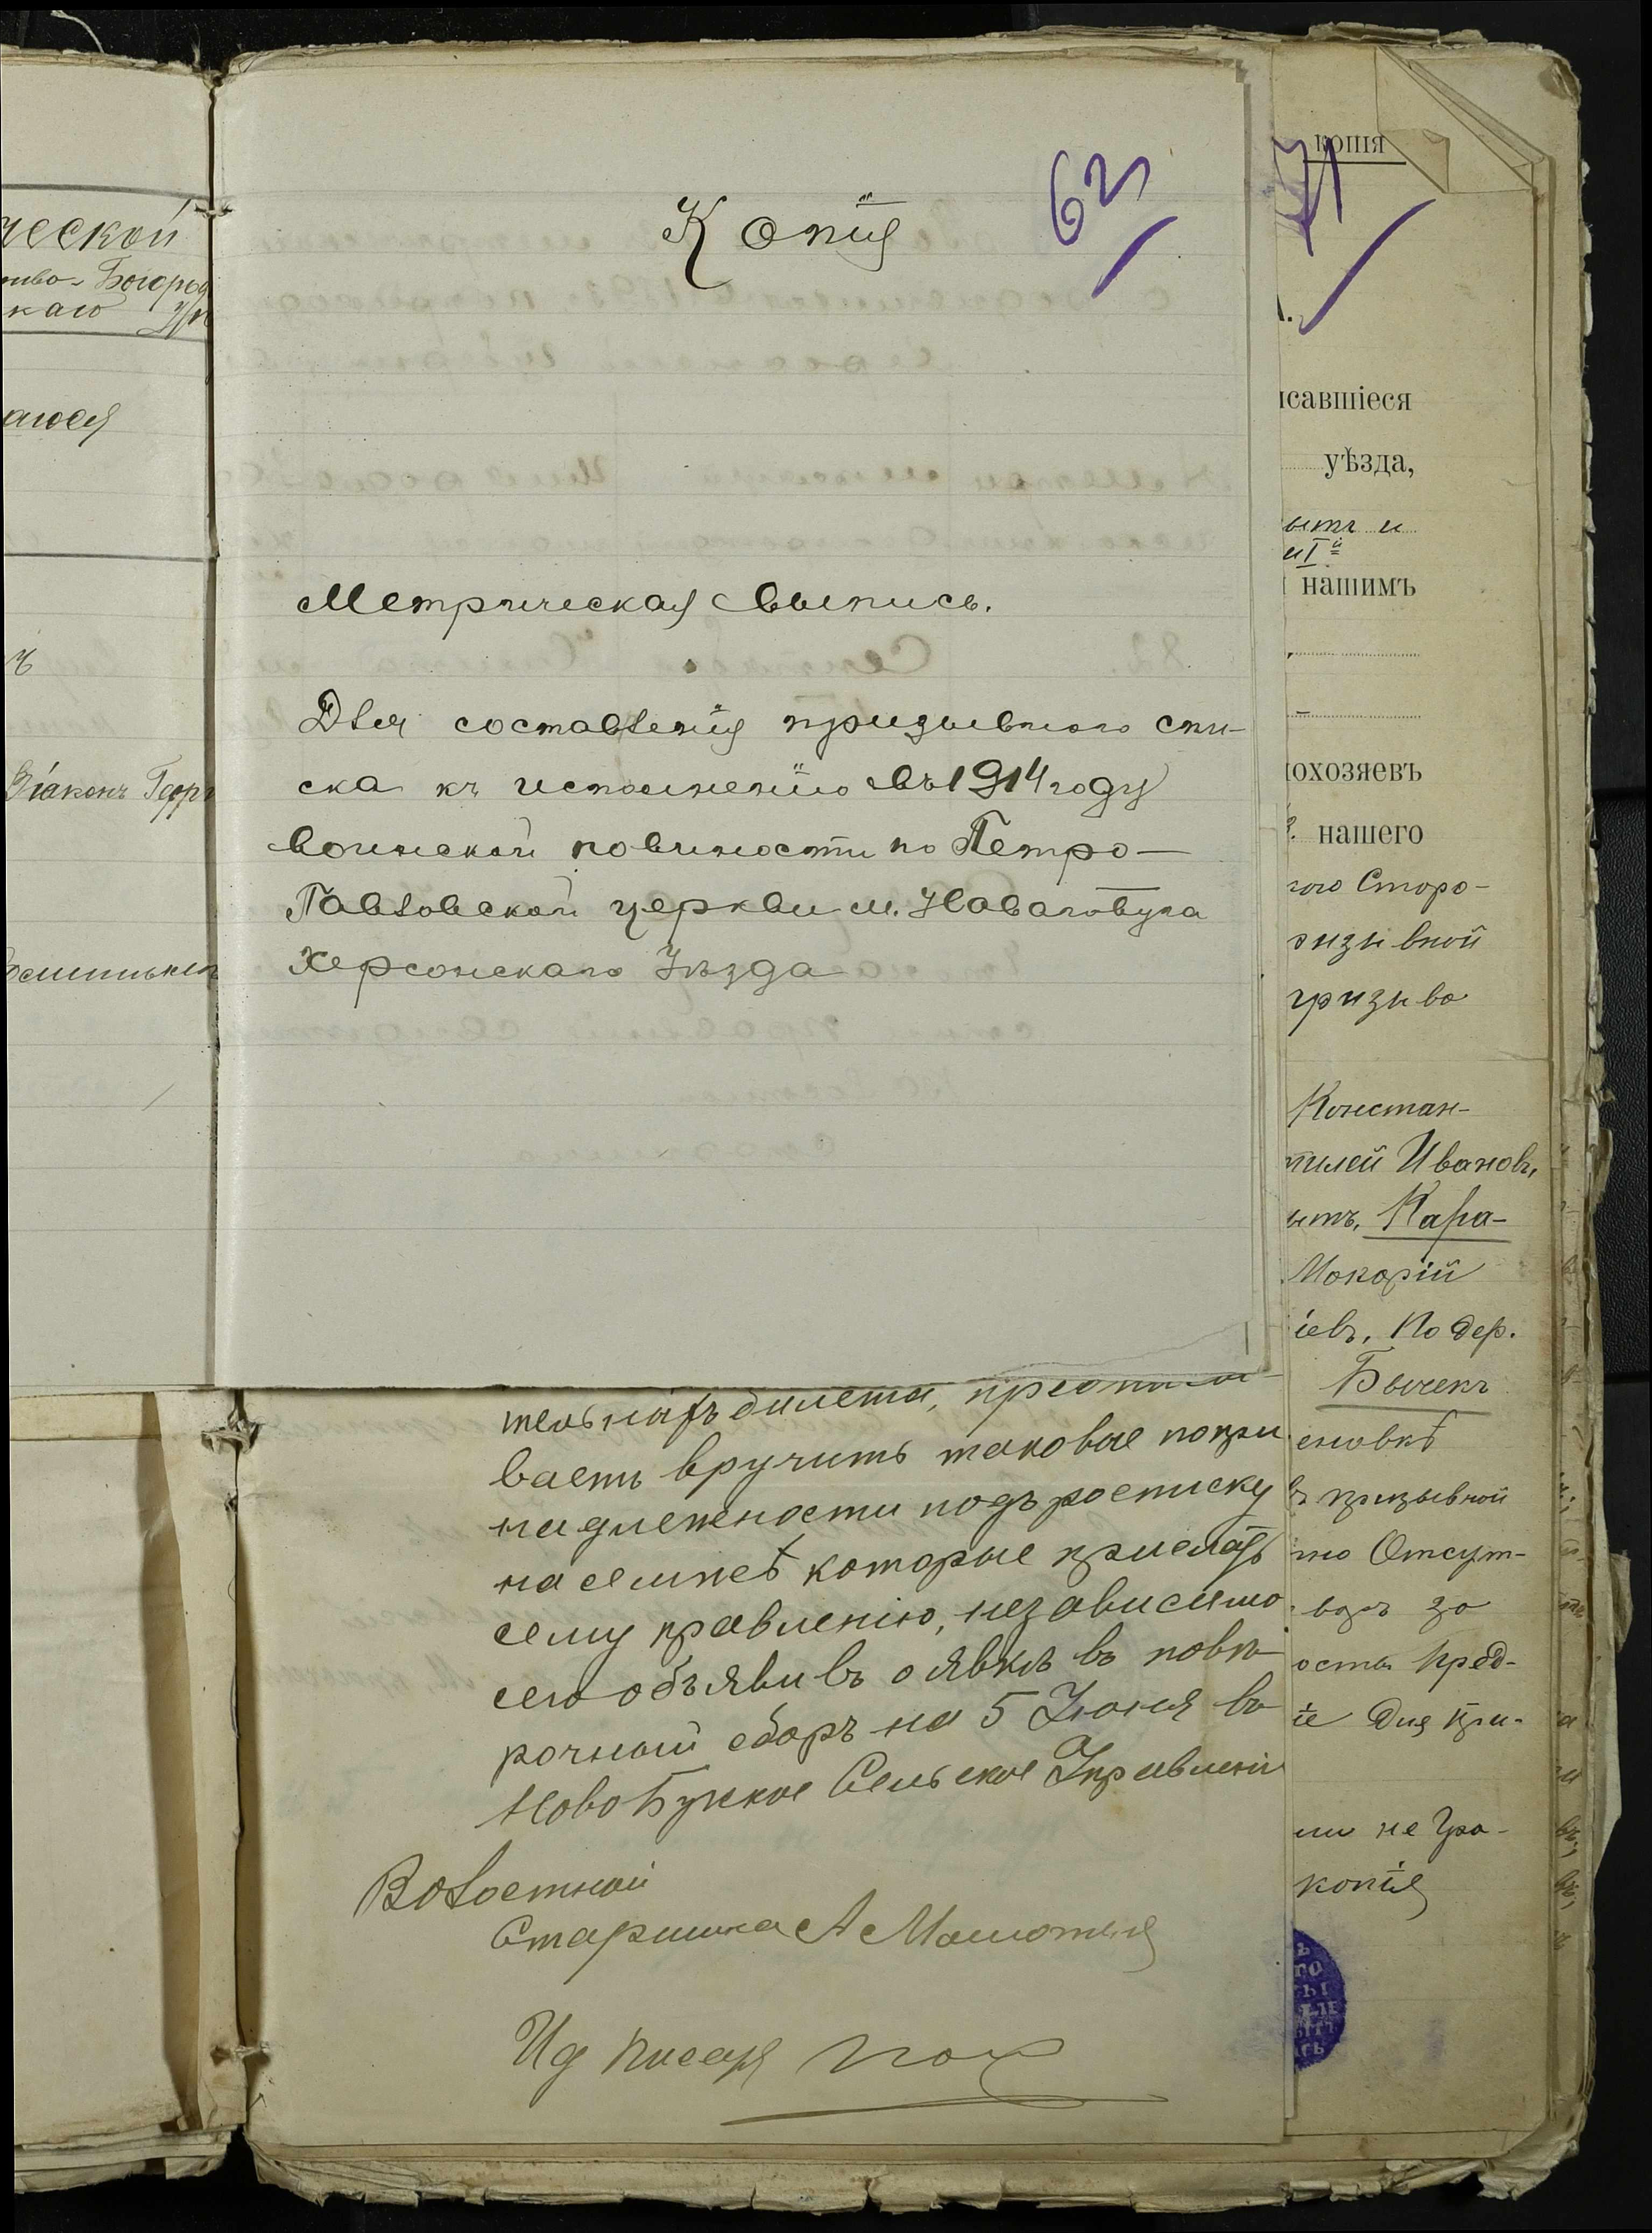 ческой
каго
аюся
ъ
Діаконъ Георг
Копія
62
Метрическая выпись.
Для составленія призывного спи-
ска къ исполненію въ 1914 году
воинской повиности по Петро-
Павловской церкви м. Новагобуга
Херсонскаго Уѣзда
билета,
вает вручить таковые по при
надлежности подъ росписку
на семже которые прислать
сему правленію, независимо
сего объявивъ о явкѣ въ повѣ-
рочный сборъ на 5 Іюня въ
Новобугское Сельское Управлені
Волостной
Старшина А
Ид Писаря
копія
71
исавшіеся
уѣзда,
ытъ и
и I й
нашимъ
охозяевъ
нашего
ого Сторо-
ризывной
призыва
Констан-
тилей Ивановъ,
итъ, Кара-
Макарій
іевъ, По дер.
Бычекъ
еновкѣ
въ призывной
но Отсут-
за
ость пред-
іе для при-
ии не гра-
копія